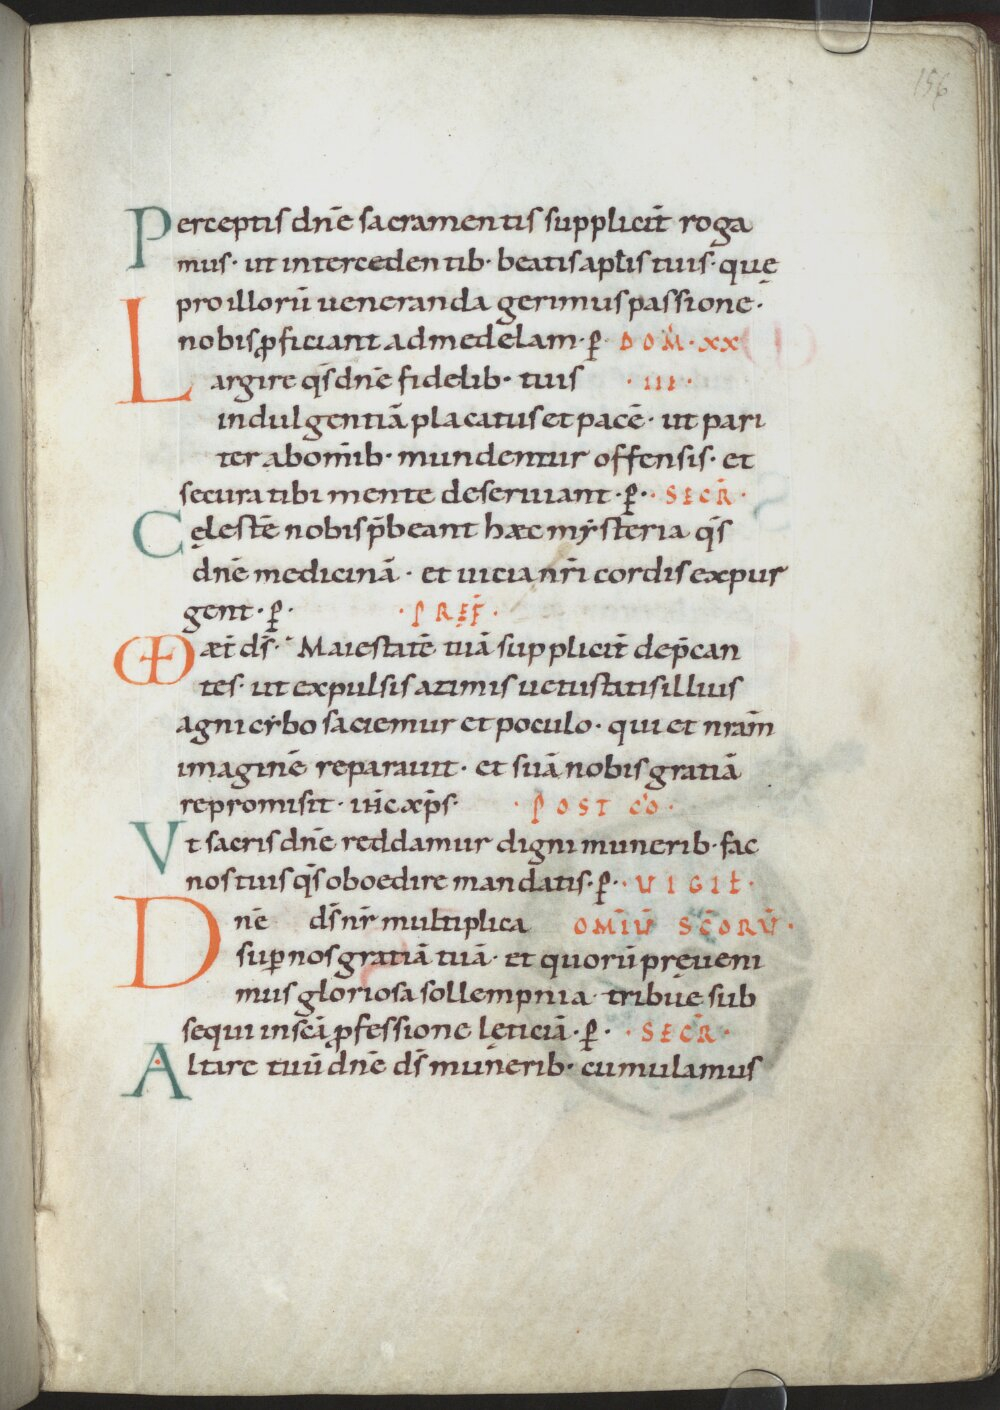 156
Perceptis dnē sacramentis supplicit̄ roga
mus· ut intercedentib· beatis apl̄is tuis· quę
pro illorū ueneranda gerimus passione·
nobis ꝓficiant ad medelam· ꝑ· DOM̄·XX
Largire q̄s dnē fidelib· tuis ·III·
indulgentiā placatus et pacē· ut pari
ter ab om̄ib· mundentur offensis· et
secura tibi mente deseruiant· ꝑ· · SECR̄·
Cęlestē nobis p̄beant haec mẏsteria q̄s
dnē medicinā· et uicia nr̄i cordis expur
gent· ꝑ· · PREF̄·
VD aet̄ ds̄· Maiestatē tuā supplicit̄ dep̄can
tes· ut expulsis azimis uetustatis illius
agni cẏbo saciemur et poculo· qui et nrām
imaginē reparauit· et suā nobis gratiā
repromisit· ih̄c xp̄s· · POST CO·
Vt sacris dnē reddamur digni munerib· fac
nos tuis q̄s oboedire mandatis· ꝑ· · UIGIL̄·
Dnē ds̄ nr̄ multiplica OMIŪ SC̄ORŪ·
suꝑ nos gratiā tuā· et quorū pręueni
mus gloriosa sollempnia· tribue sub
sequi in sc̄a ꝓfessione lęticiā· ꝑ· · SECR̄·
Altare tuū dnē ds̄ munerib· cumulamus